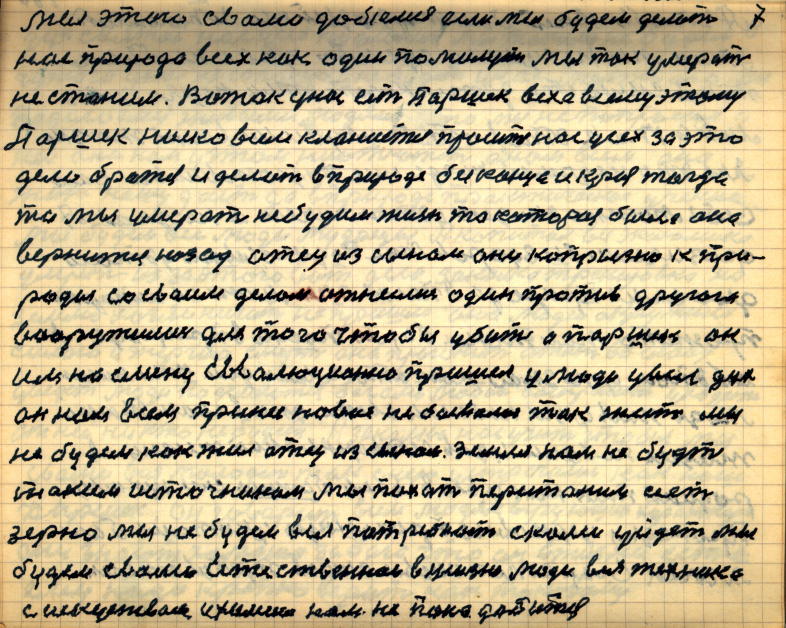 мы этого сваего добемся если мы будем делать 7
нас природа всех как один помилуит мы так умерать
нестаним. Вотак унас есть Паршек веха всему этому
Паршек низко всем кланиется просит нас усех за это
дело братся и делать вприроде бесконца и края тагда
то мы умерать небудим жизн та которая была она
вернится назад отец из сынам они капризно к при-
роды со сваим делом отнеслися один против другога
вооружилися для того чтобы убить а паршек он
им на смену Эвалюционно пришел у люди увел дух
он нам всем принес новае не бывалае так жить мы
не будем как жил отец из сынам. Земля нам не будт
таким источником мы пахат перистаним сеет
зерно мы не будем вся патребность с нами уйдет мы
будем сваим Естественнае в жизню люди вся техника
с искуством, и химиею нам не пона добится